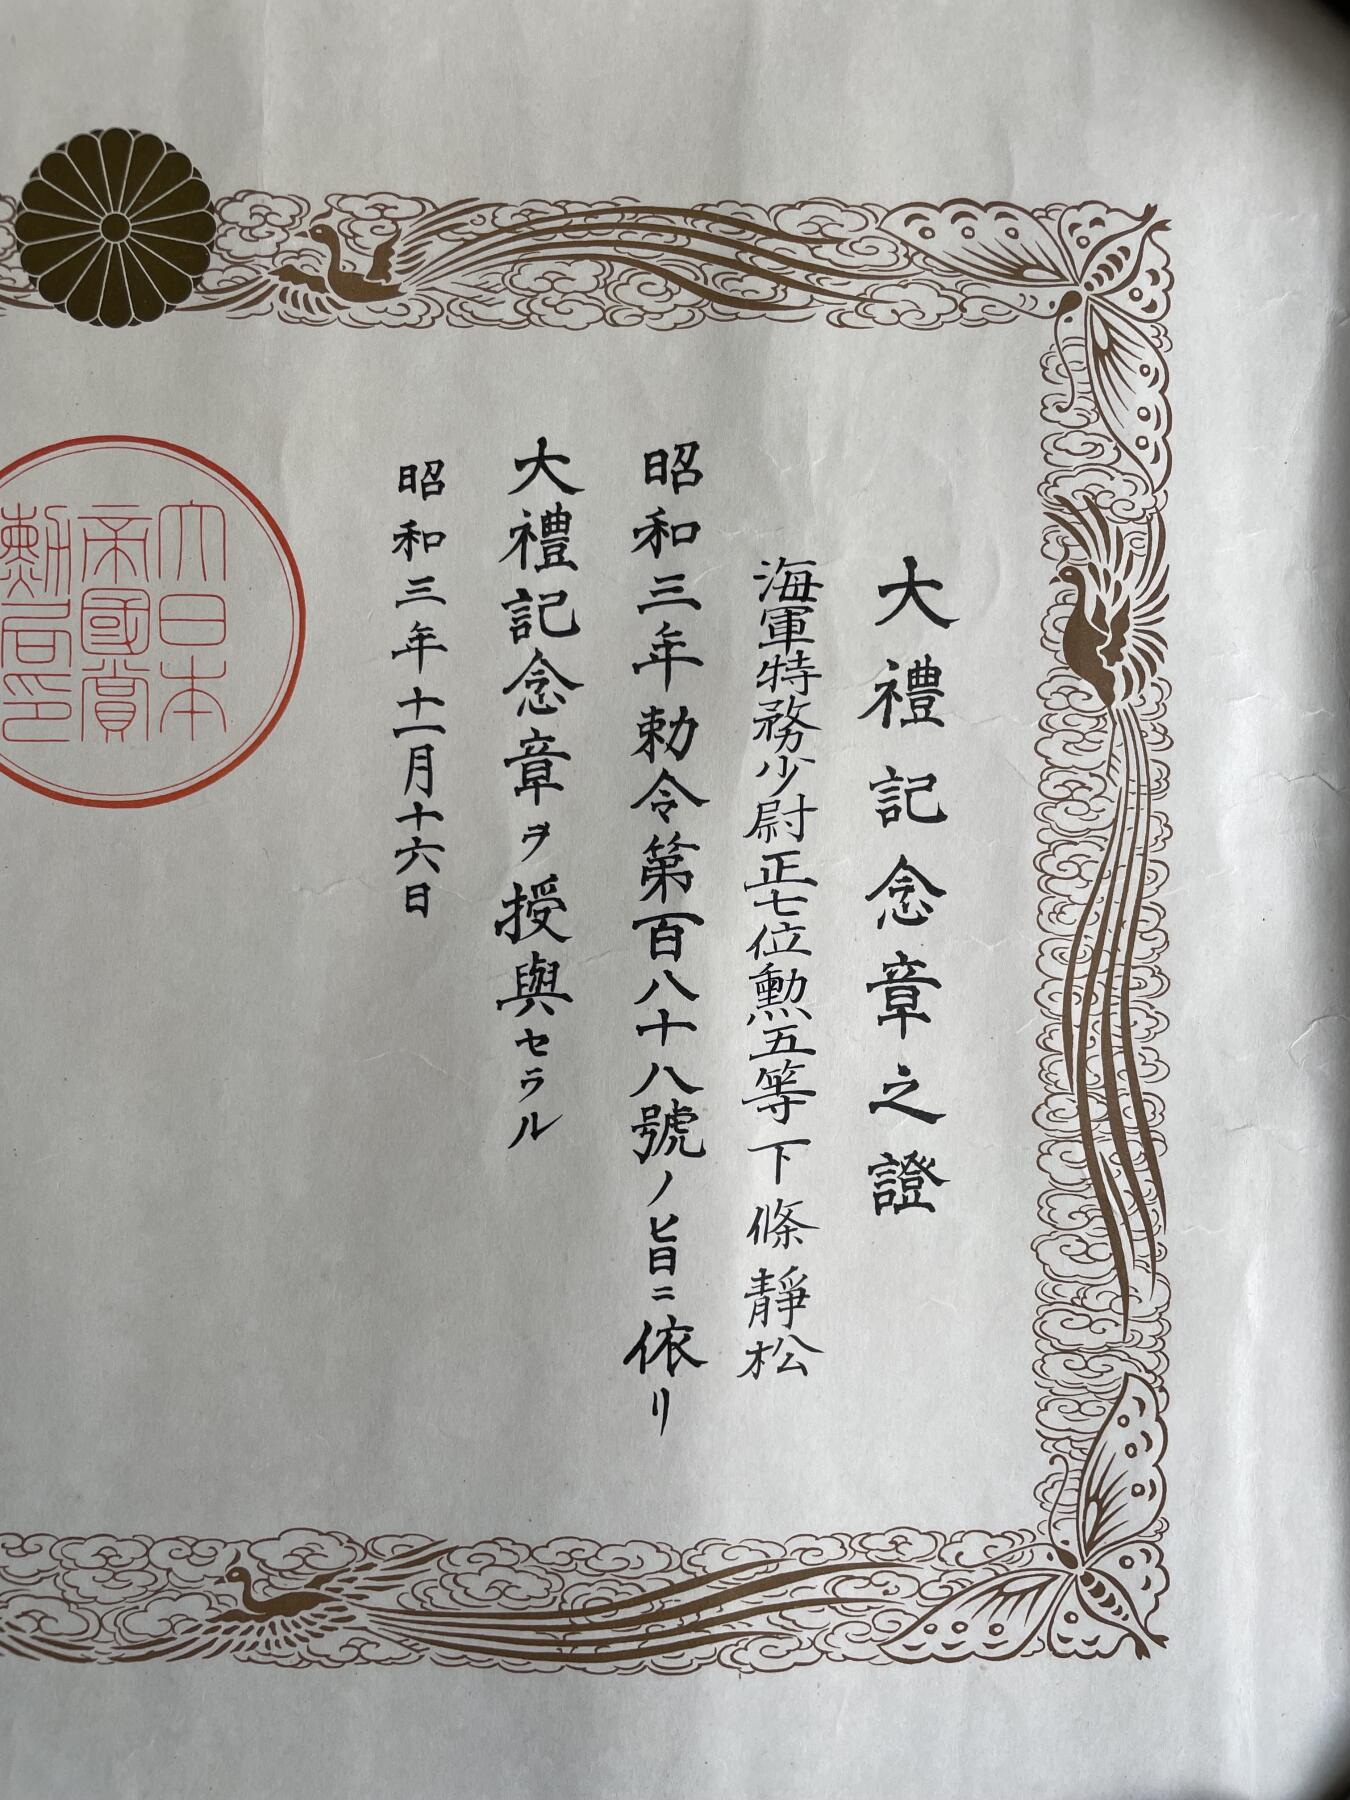 大禮記念章之證
海軍特務少尉正七位勲五等下條靜松
昭和三年勅令第百八十八號ノ旨ニ依リ
大禮記念章ヲ授與セラル
昭和三年十一月十六日
大日本
帝國賞
勲局印